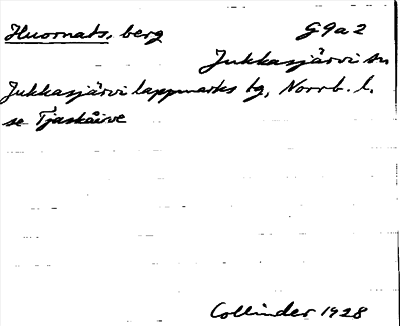 Huornats, berg G9a2
Jukkasjärvi sn
Jukkasjärvi lappmarks tg, Norrb. l.
se Tjaskåive
Collinder 1928